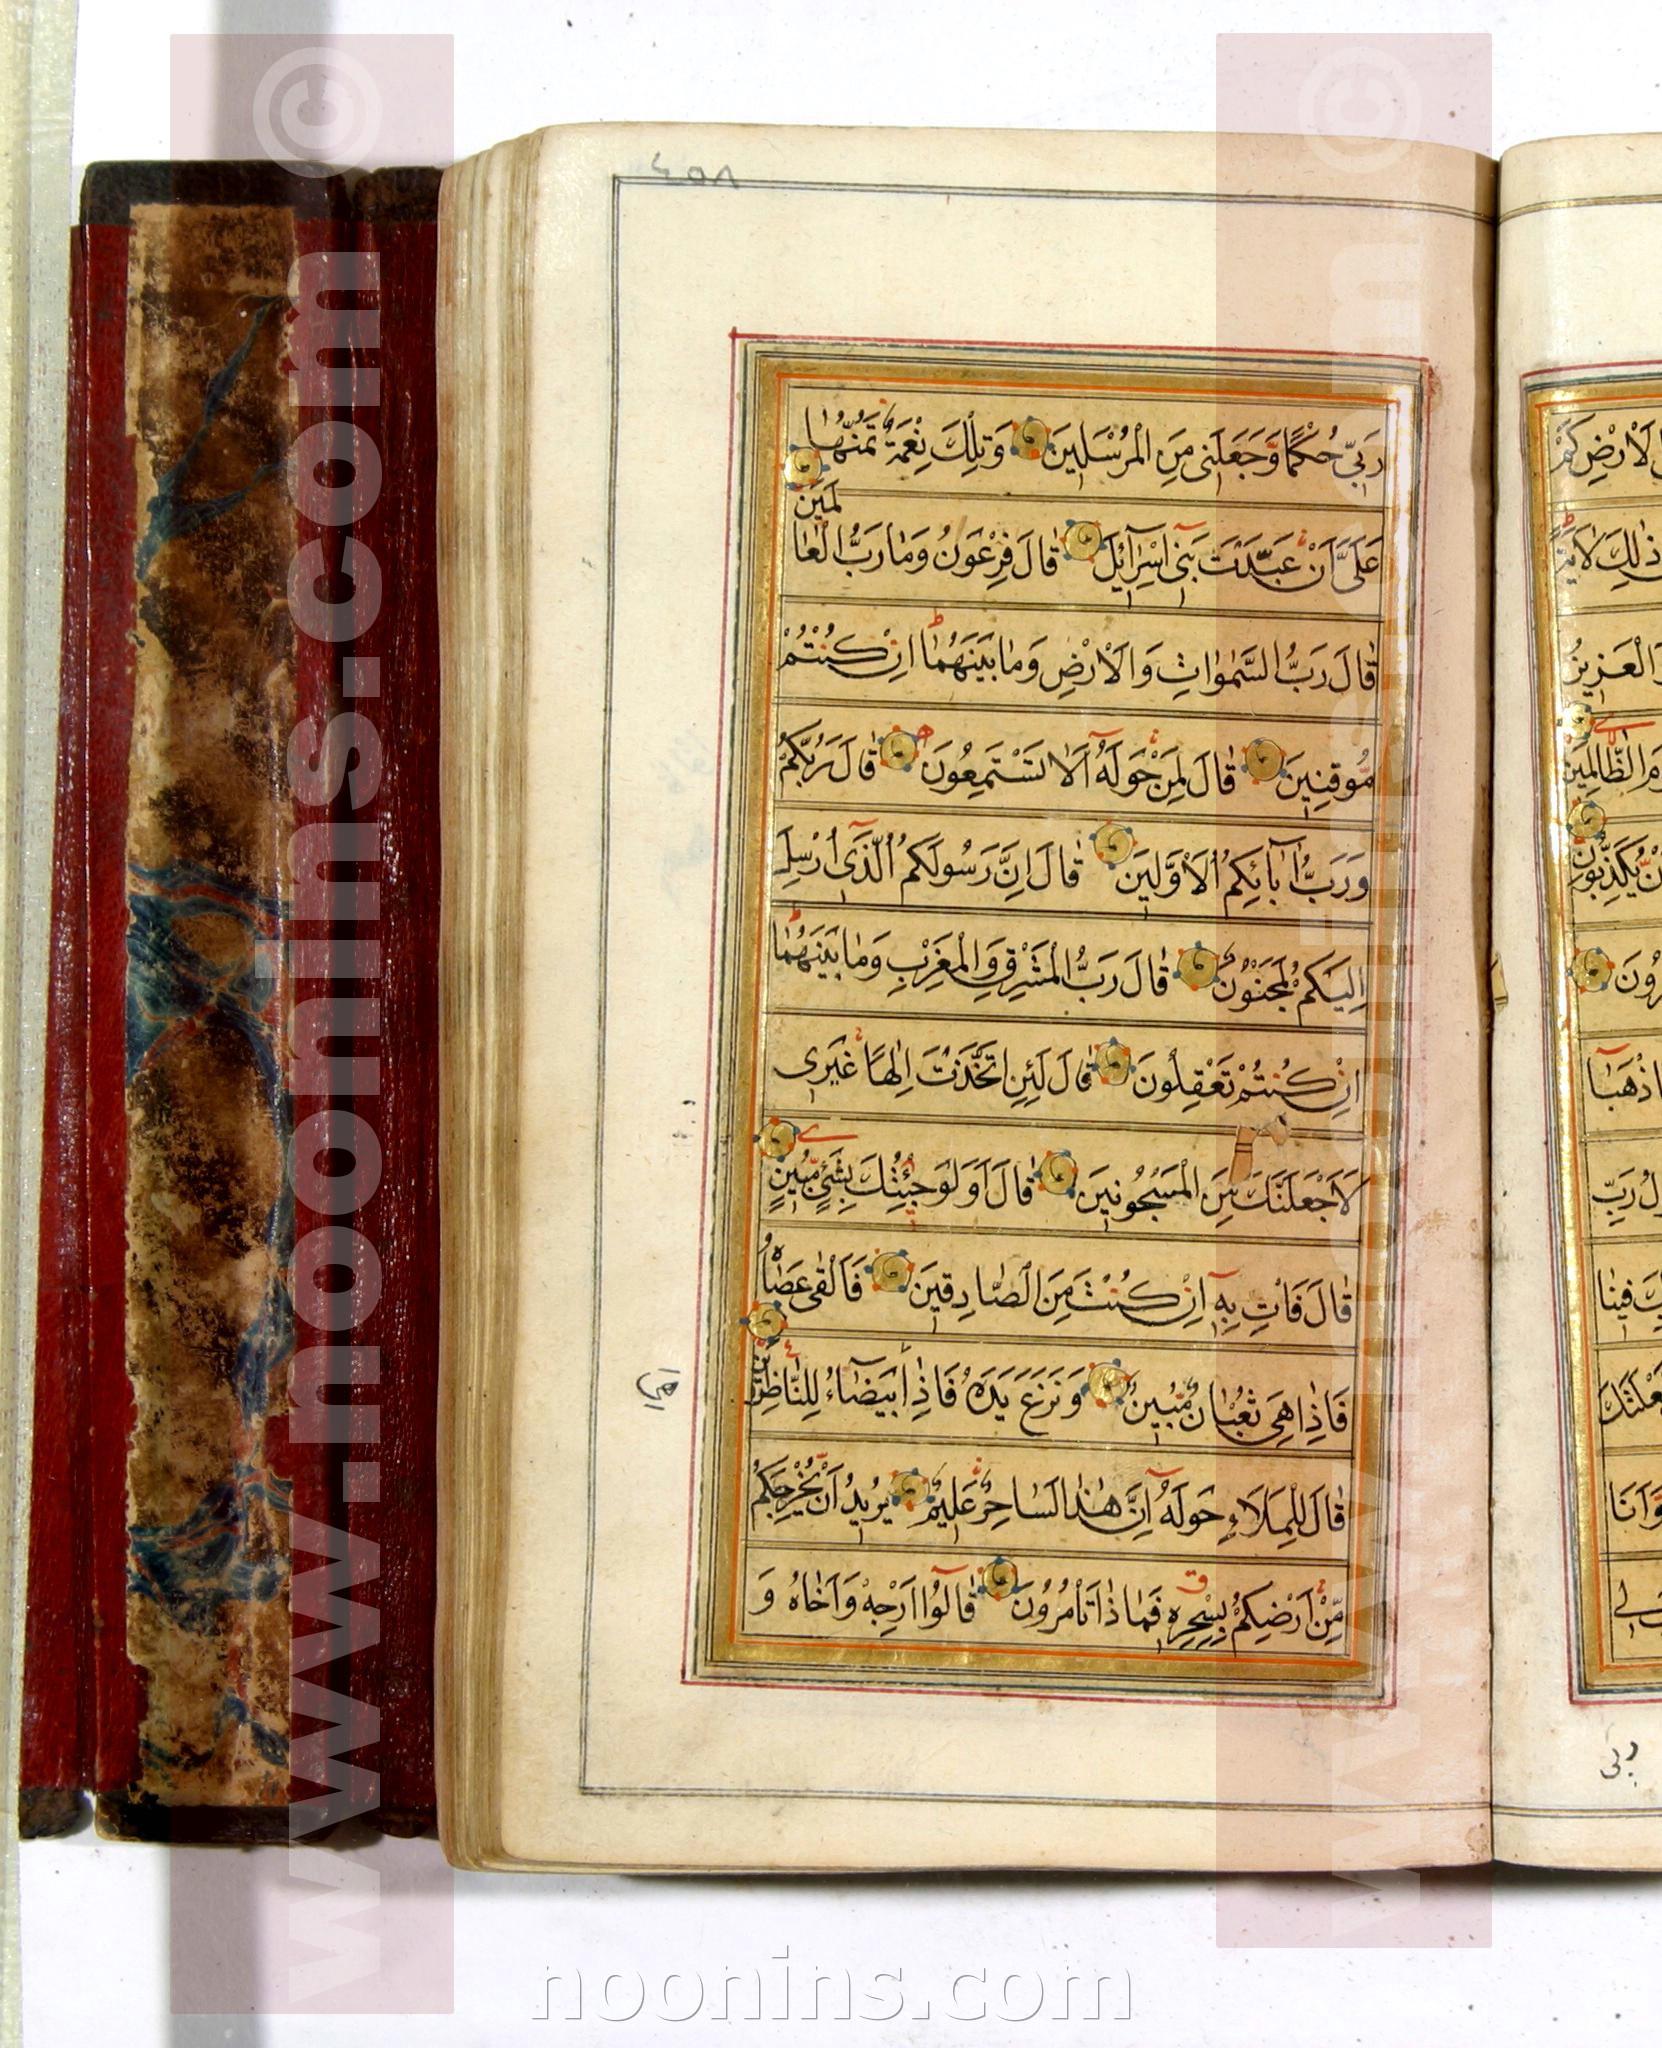 ٤٥٨
رَبِّي حُكْمًا وَّجَعَلَنِي مِنَ الْمُرْسَلِينَ وَتِلْكَ نِعْمَةٌ تَمُنُّهَا
عَلَيَّ أَنْ عَبَّدْتَ بَنِي اِسْرَآئِلَ قَالَ فِرْعَوْنُ وَمَا رَبُّ الْعَالَمِينَ
قَالَ رَبُّ السَّمٰوَاتِ وَالْاَرْضِ وَمَا بَيْنَهُمَا اِنْ كُنْتُمْ
مُّوقِنِينَ قَالَ لِمَنْ حَوْلَهُ اَلَا تَسْتَمِعُونَ قَالَ رَبُّكُمْ
وَرَبُّ اٰبَآئِكُمُ الْاَوَّلِينَ قَالَ اِنَّ رَسُولَكُمُ الَّذِي اُرْسِلَ
اِلَيْكُمْ لَمَجْنُونٌ قَالَ رَبُّ الْمَشْرِقِ وَالْمَغْرِبِ وَمَا بَيْنَهُمَا
اِنْ كُنْتُمْ تَعْقِلُونَ قَالَ لَئِنِ اتَّخَذْتَ اِلٰهًا غَيْرِي
لَاَجْعَلَنَّكَ مِنَ الْمَسْجُونِينَ قَالَ اَوَلَوْ جِئْتُكَ بِشَيْءٍ مُّبِينٍ
قَالَ فَاْتِ بِهِ اِنْ كُنْتَ مِنَ الصَّادِقِينَ فَاَلْقٰى عَصَاهُ
فَاِذَا هِيَ ثُعْبَانٌ مُّبِينٌ وَنَزَعَ يَدَهُ فَاِذَا بَيْضَآءُ لِلنَّاظِرِينَ
قَالَ لِلْمَلَاءِ حَوْلَهُ اِنَّ هٰذَا لَسَاحِرٌ عَلِيمٌ يُرِيدُ اَنْ يُّخْرِجَكُمْ
مِّنْ اَرْضِكُمْ بِسِحْرِهٖ فَمَاذَا تَاْمُرُونَ قَالُوا اَرْجِهْ وَاَخَاهُ وَ
الْاَرْضِ كَمْ
ذٰلِكَ لَاٰيَةً
الْعَزِيزُ
الظَّالِمِينَ
يُّكَذِّبُونِ
فَاذْهَبَا
رَبِّ
فِينَا
وَاَنَا
رَبِّي
www.noonins.com ©
www.noonins.com ©
noonins.com